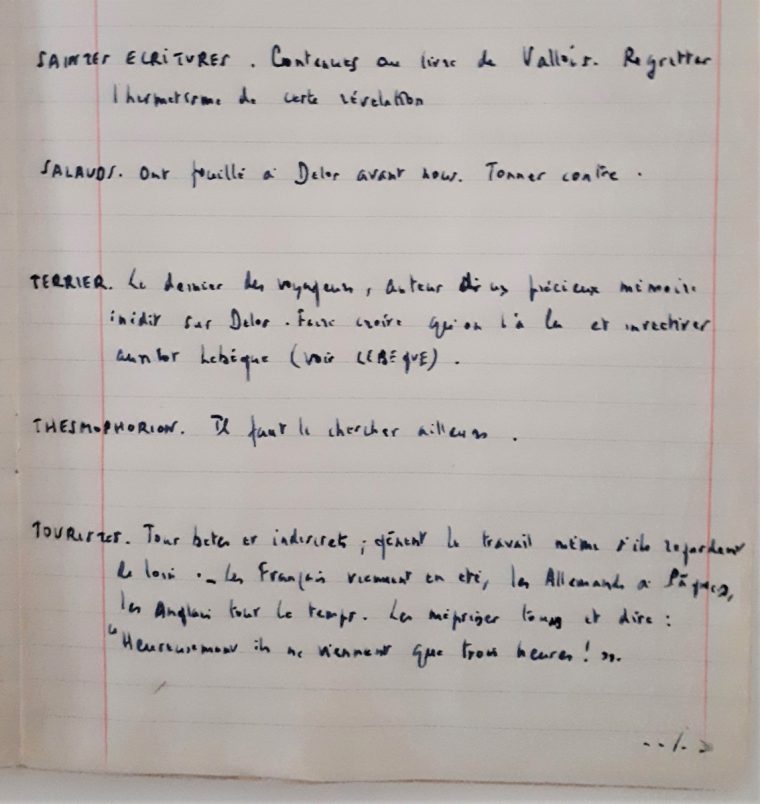 SAINTES ECRITURES. Contenues au livre de Vallois. Regretter
l'hermetisme de cette révélation
SALAUDS. Ont fouillé à Delos avant nous. Tonner contre.
TERRIER. Le dernier des voyageurs, auteur d'un précieux mémoire
inédit sur Delos. Faire croire qu'on l'a lu et invectiver
aussitot Lebègue (voir LEBEGUE).
THESMOPHORION. Il faut le chercher ailleurs.
TOURISTES. Tous betes et indiscrets ; gênent le travail même s'ils regardent
de loin. _ Les Français viennent en eté, les Allemands a Pâques,
les Anglais tout le temps. Les mépriser tous et dire :
"Heureusement ils ne viennent que trois heures ! ».
../.